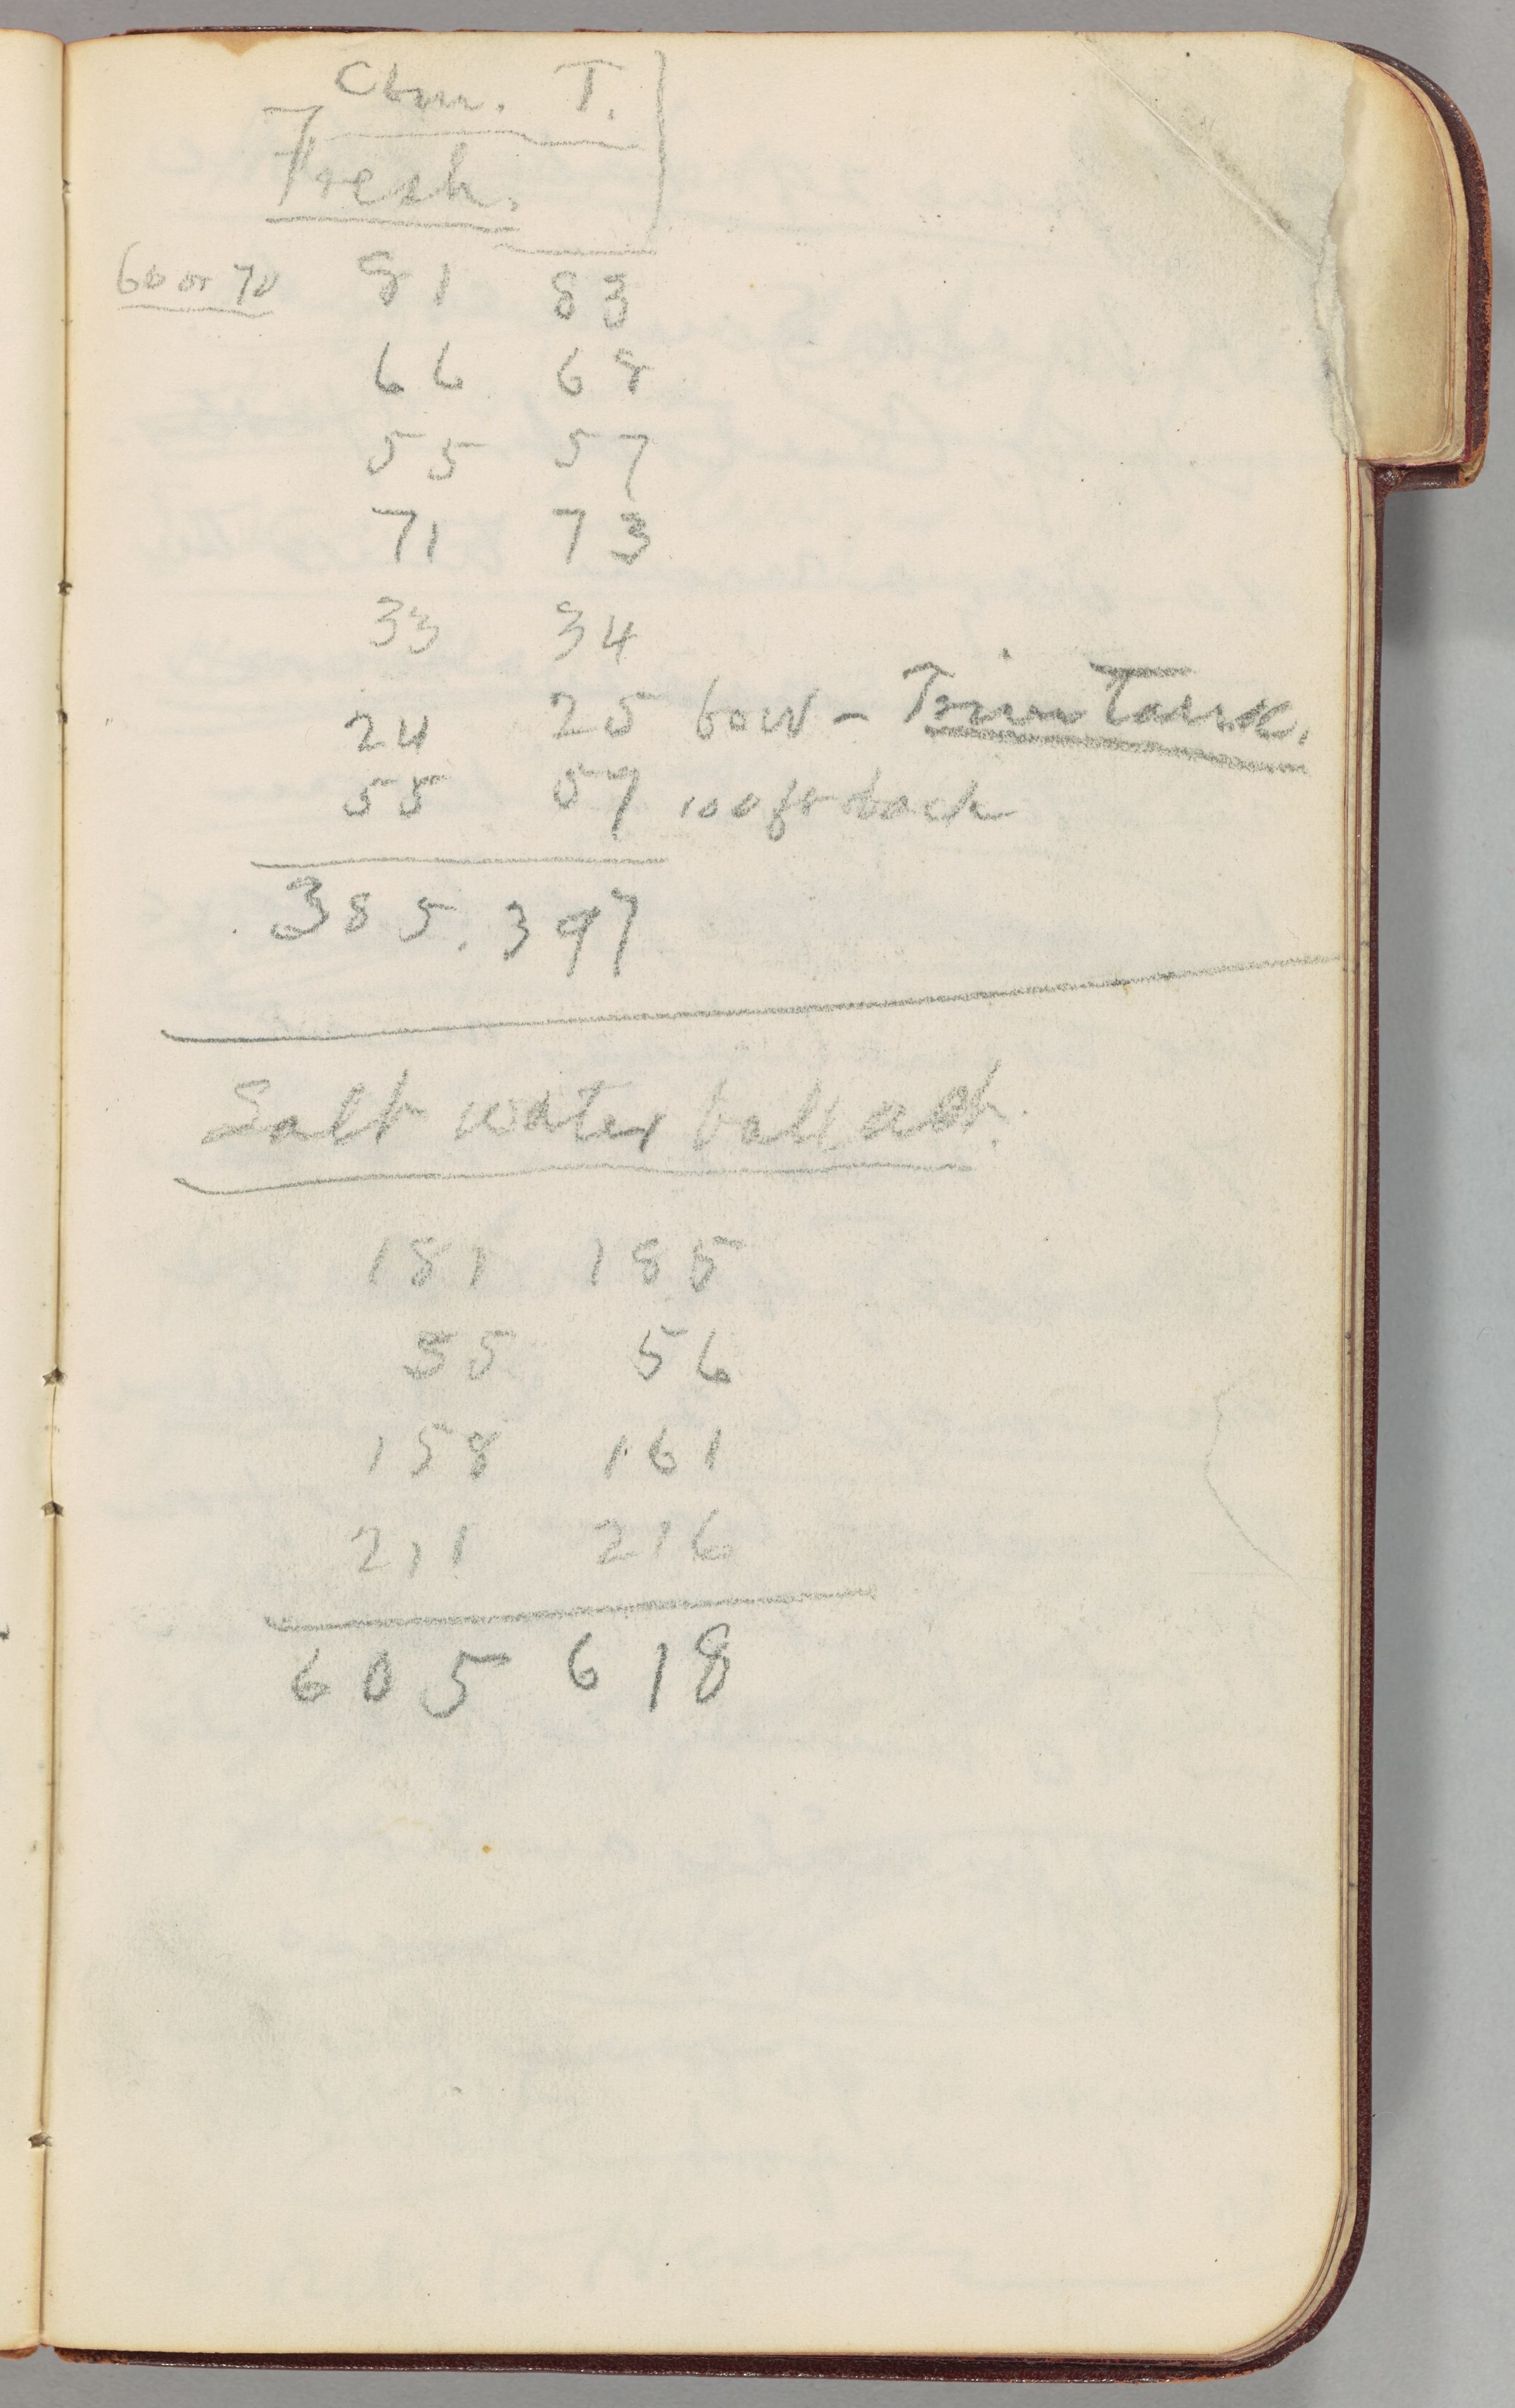 Cbm. T.
Fresh.
60 or 70 81 83
66 68
55 57
71 73
33 34
24 25 bow - Trim Tank.
55 57 100 ft back
385. 397
Salt water ballast.
181 185
55 56
158 161
211 216
605 618